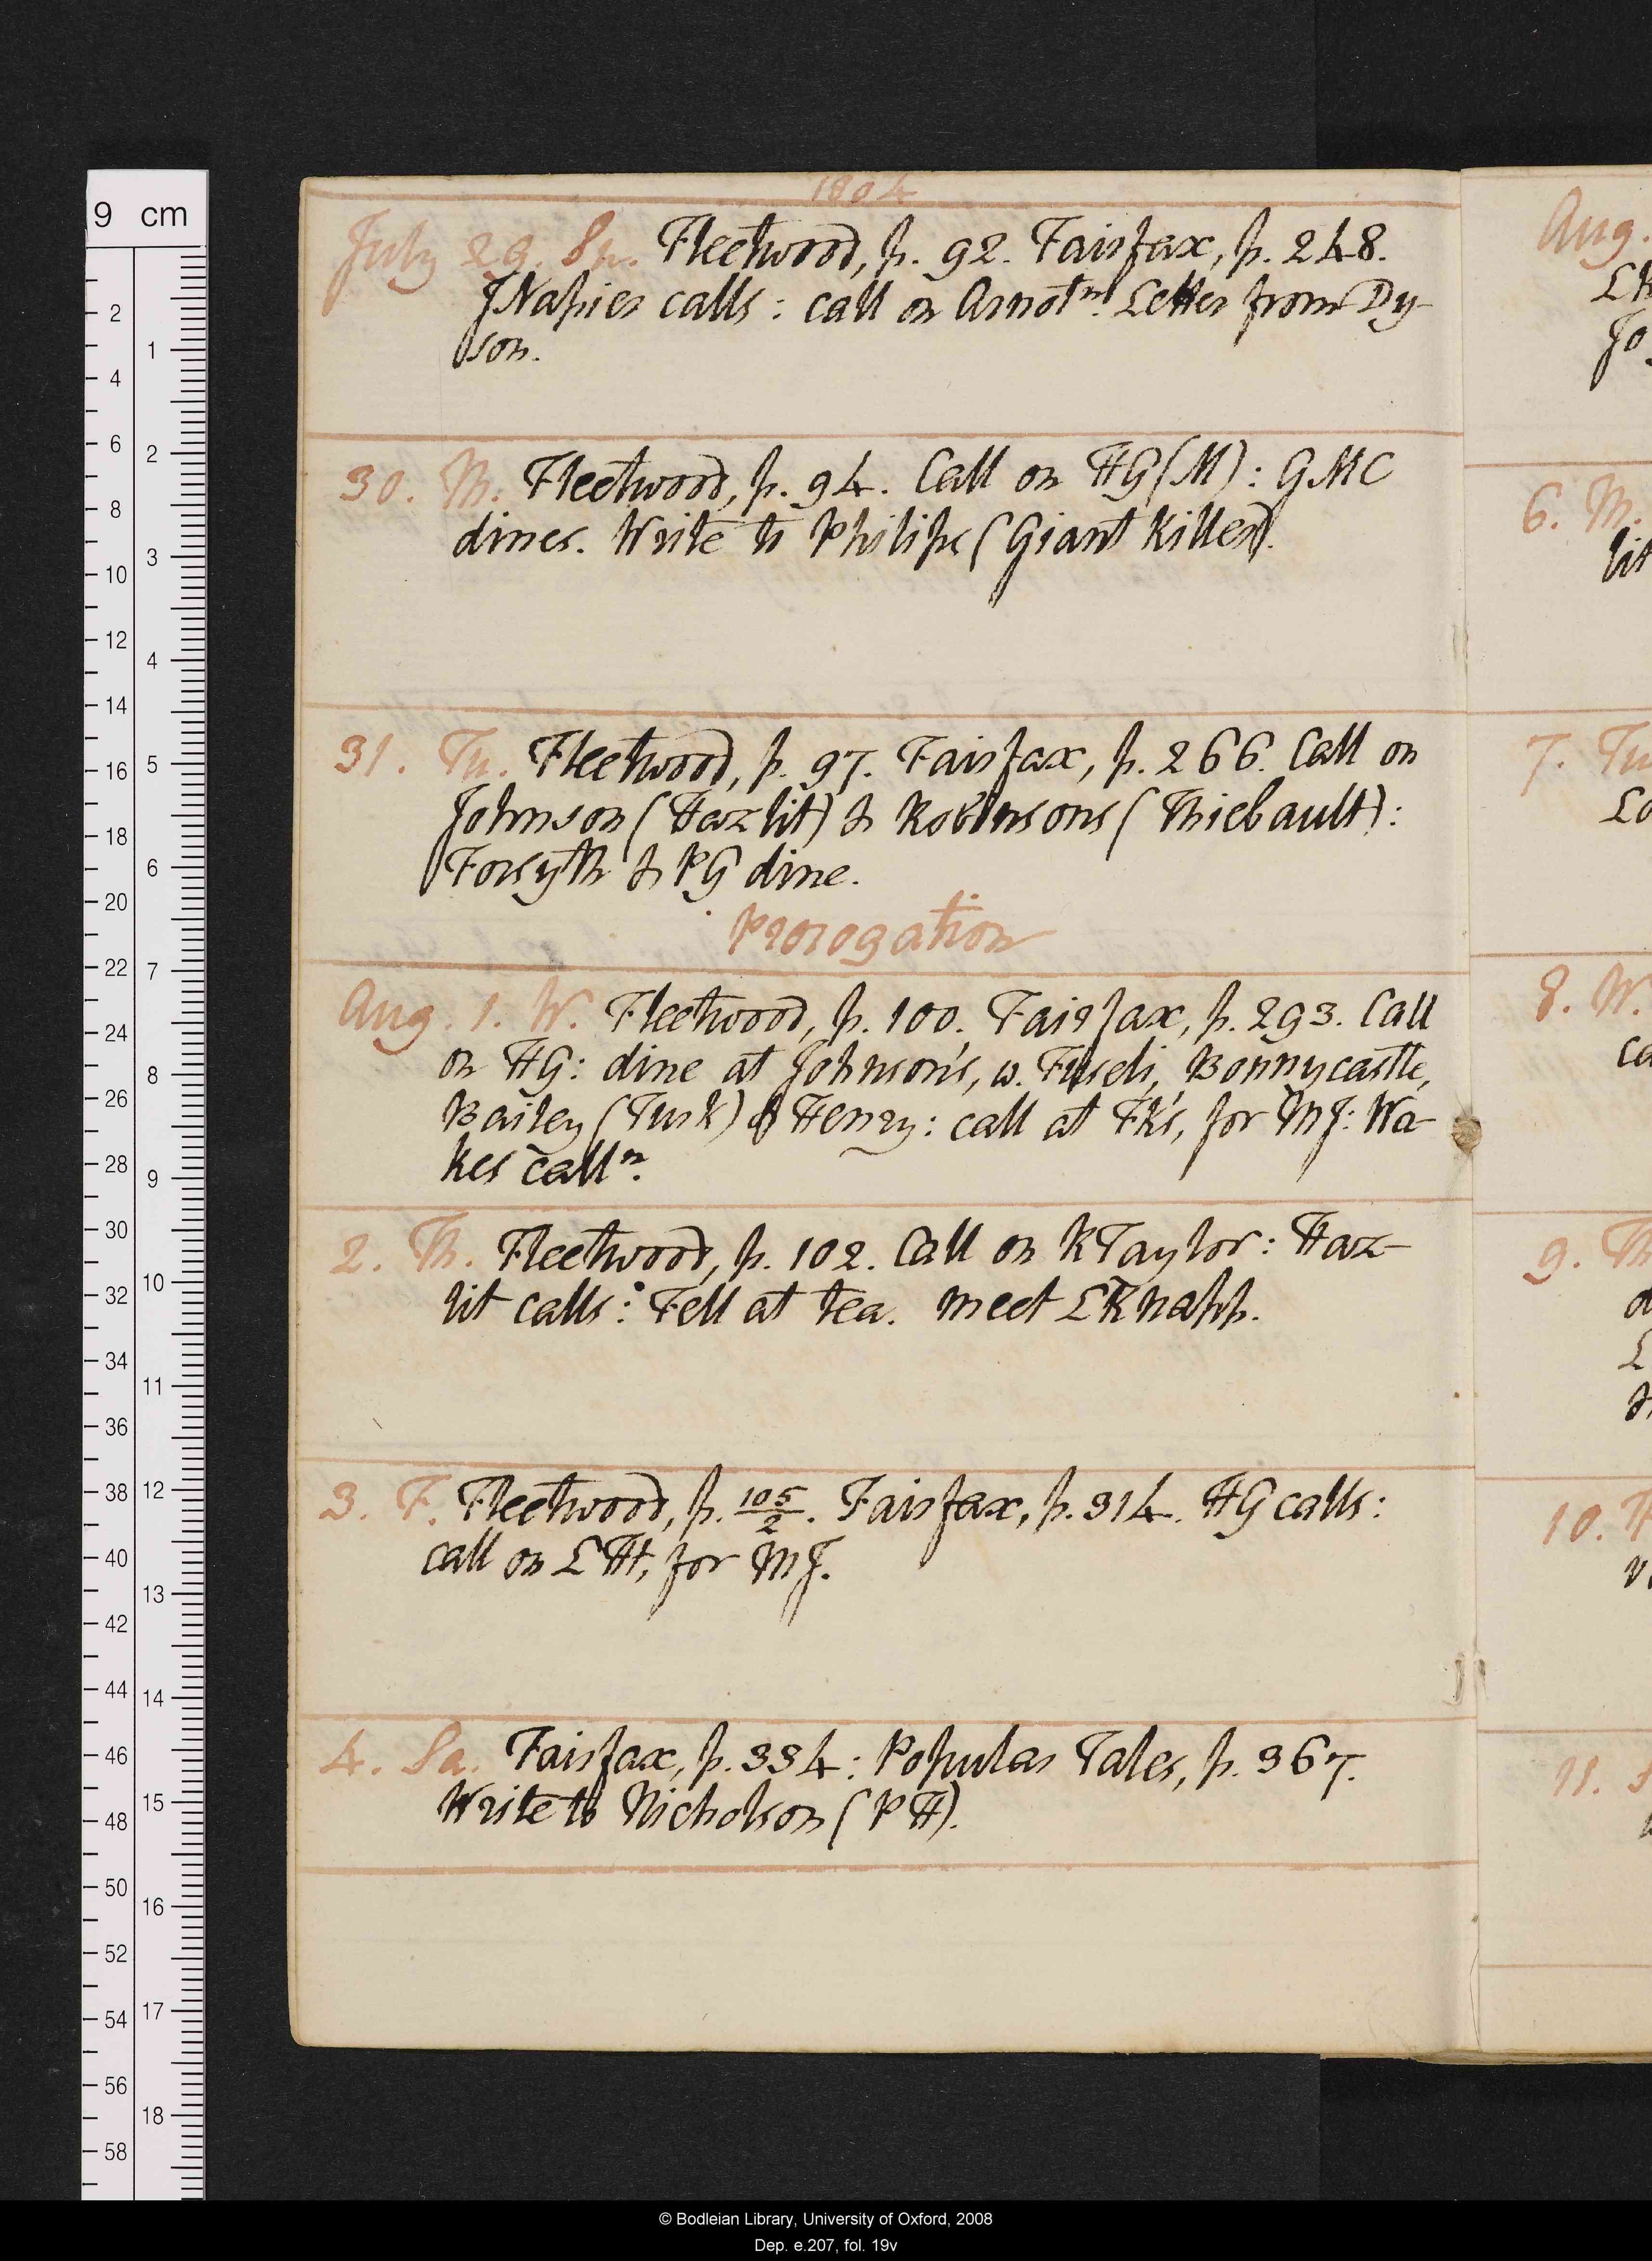 1804
July 29. Su. Fleetwood, p. 92. Fairfax, p. 248.
JNapier calls: call on Arnot ⁿ. Letter from Dy-
son.
30. M. Fleetwood, p. 94. Call on HG (M): GMC
dines. Write to Philips (Giant Killer).
31. Tu. Fleetwood, p. 97. Fairfax, p. 266. Call on
Johnson (Hazlit) & Robinsons (Thiebault):
Forsyth & PG dine.
Prorogation
Aug. 1. W. Fleetwood, p. 100. Fairfax, p. 293. Call
on HG: dine at Johnson's, w. Fuseli, Bonnycastle,
Bailey (Turk) & Henry: call at FK's, for MJ: Wa-
kes call ⁿ.
2. Th. Fleetwood, p. 102. Call on KTaylor: Haz-
lit calls: Fell at tea. meet LKnapp.
3. F. Fleetwood, p. 105/2. Fairfax, p. 314. HG calls:
call on LHt, for MJ.
4. Sa. Fairfax, p. 334: Popular Tales, p. 367.
Write to Nicholson (PH).
Aug.
LH
Jo
6. M.
lit
7. Tu
8. W.
ca
9. Th
10.
11.
9 cm
2
4
6
8
10
12
14
16
18
20
22
24
26
28
30
32
34
36
38
40
42
44
46
48
50
52
54
56
58
1
2
3
4
5
6
7
8
9
10
11
12
13
14
15
16
17
18
© Bodleian Library, University of Oxford, 2008
Dep. e.207, fol. 19v